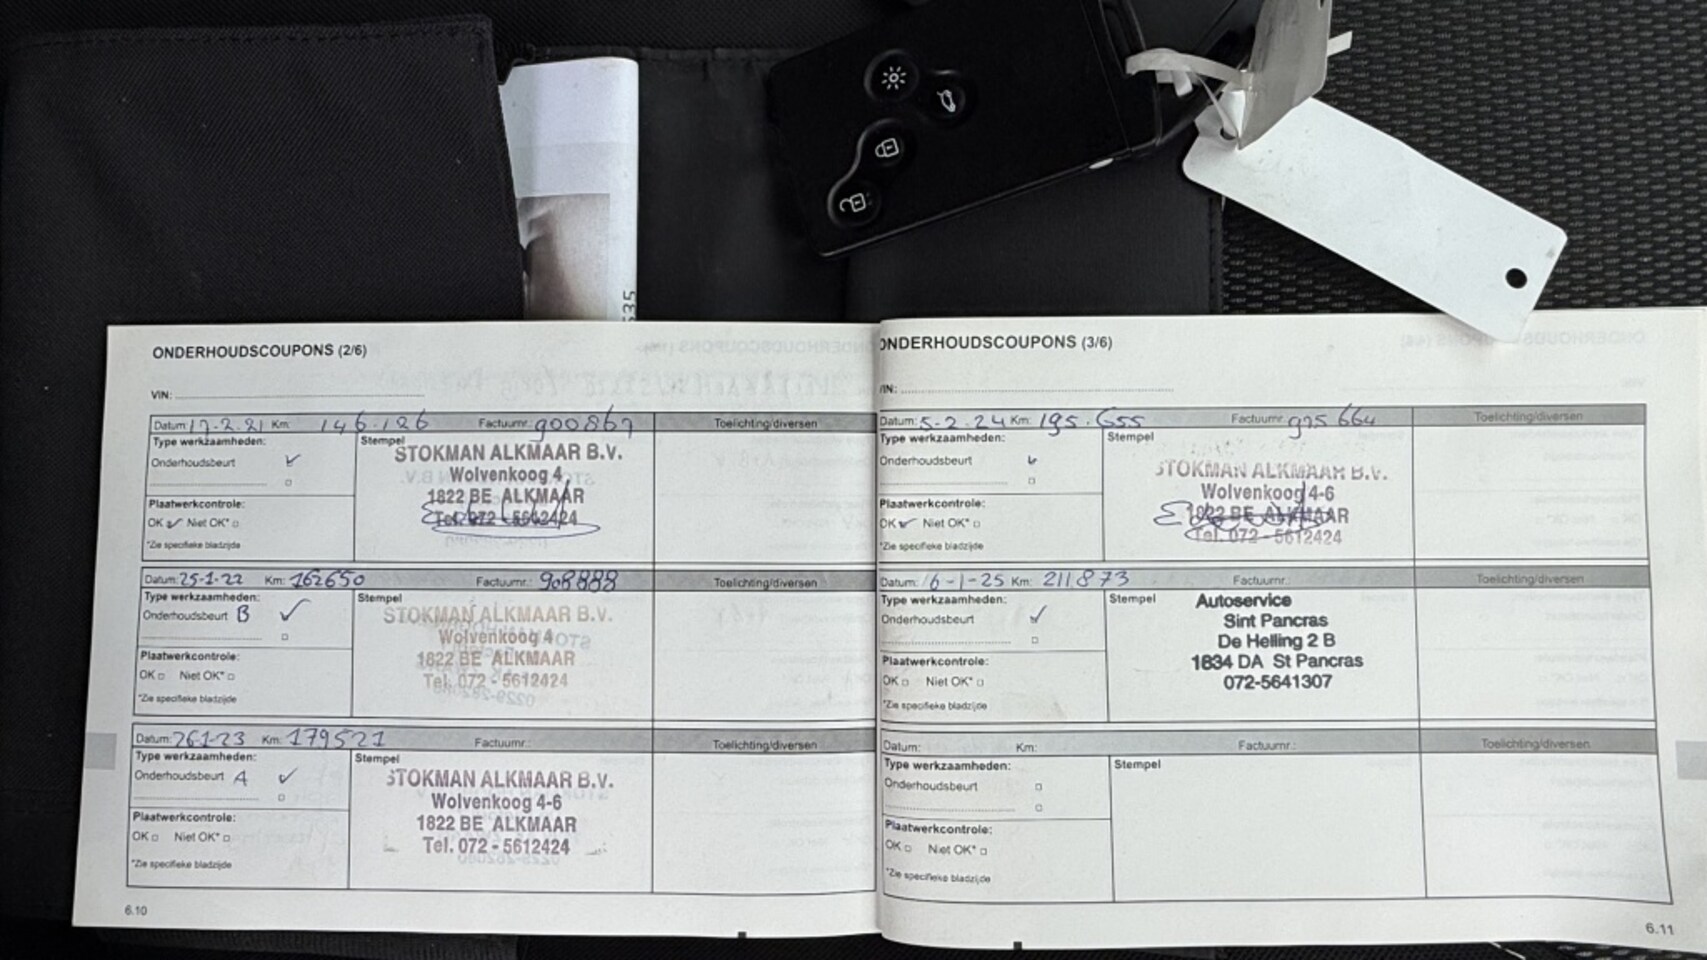 535
ONDERHOUDSCOUPONS (2/6)
VIN:
Datum: 17-2-21 Km: 146.126 Factuurnr. 900867 Toelichting/diversen
Type werkzaamheden: Stempel
Onderhoudsbeurt
STOKMAN ALKMAAR B.V.
Wolvenkoog 4
1822 BE ALKMAAR
Tel. 072 - 5612424
Plaatwerkcontrole:
OK Niet OK*
*Zie specifieke bladzijde
Datum: 25-1-22 Km: 162650 Factuurnr.: 908888 Toelichting/diversen
Type werkzaamheden: Stempel
Onderhoudsbeurt B
STOKMAN ALKMAAR B.V.
Wolvenkoog 4
1822 BE ALKMAAR
Tel. 072 - 5612424
Plaatwerkcontrole:
OK Niet OK*
*Zie specifieke bladzijde
Datum: 26-1-23 Km: 179521 Factuurnr.: Toelichting/diversen
Type werkzaamheden: Stempel
Onderhoudsbeurt A
STOKMAN ALKMAAR B.V.
Wolvenkoog 4-6
1822 BE ALKMAAR
Tel. 072 - 5612424
Plaatwerkcontrole:
OK Niet OK*
*Zie specifieke bladzijde
6.10
ONDERHOUDSCOUPONS (3/6)
VIN:
Datum: 5-2-24 Km: 195.655 Factuurnr. 975664 Toelichting/diversen
Type werkzaamheden: Stempel
Onderhoudsbeurt
STOKMAN ALKMAAR B.V.
Wolvenkoog 4-6
1822 BE ALKMAAR
Tel. 072 - 5612424
Plaatwerkcontrole:
OK Niet OK*
*Zie specifieke bladzijde
Datum: 16-1-25 Km: 211873 Factuurnr.: Toelichting/diversen
Type werkzaamheden: Stempel
Onderhoudsbeurt
Autoservice
Sint Pancras
De Helling 2 B
1834 DA St Pancras
072-5641307
Plaatwerkcontrole:
OK Niet OK*
*Zie specifieke bladzijde
Datum: Km: Factuurnr.: Toelichting/diversen
Type werkzaamheden: Stempel
Onderhoudsbeurt
Plaatwerkcontrole:
OK Niet OK*
*Zie specifieke bladzijde
6.11